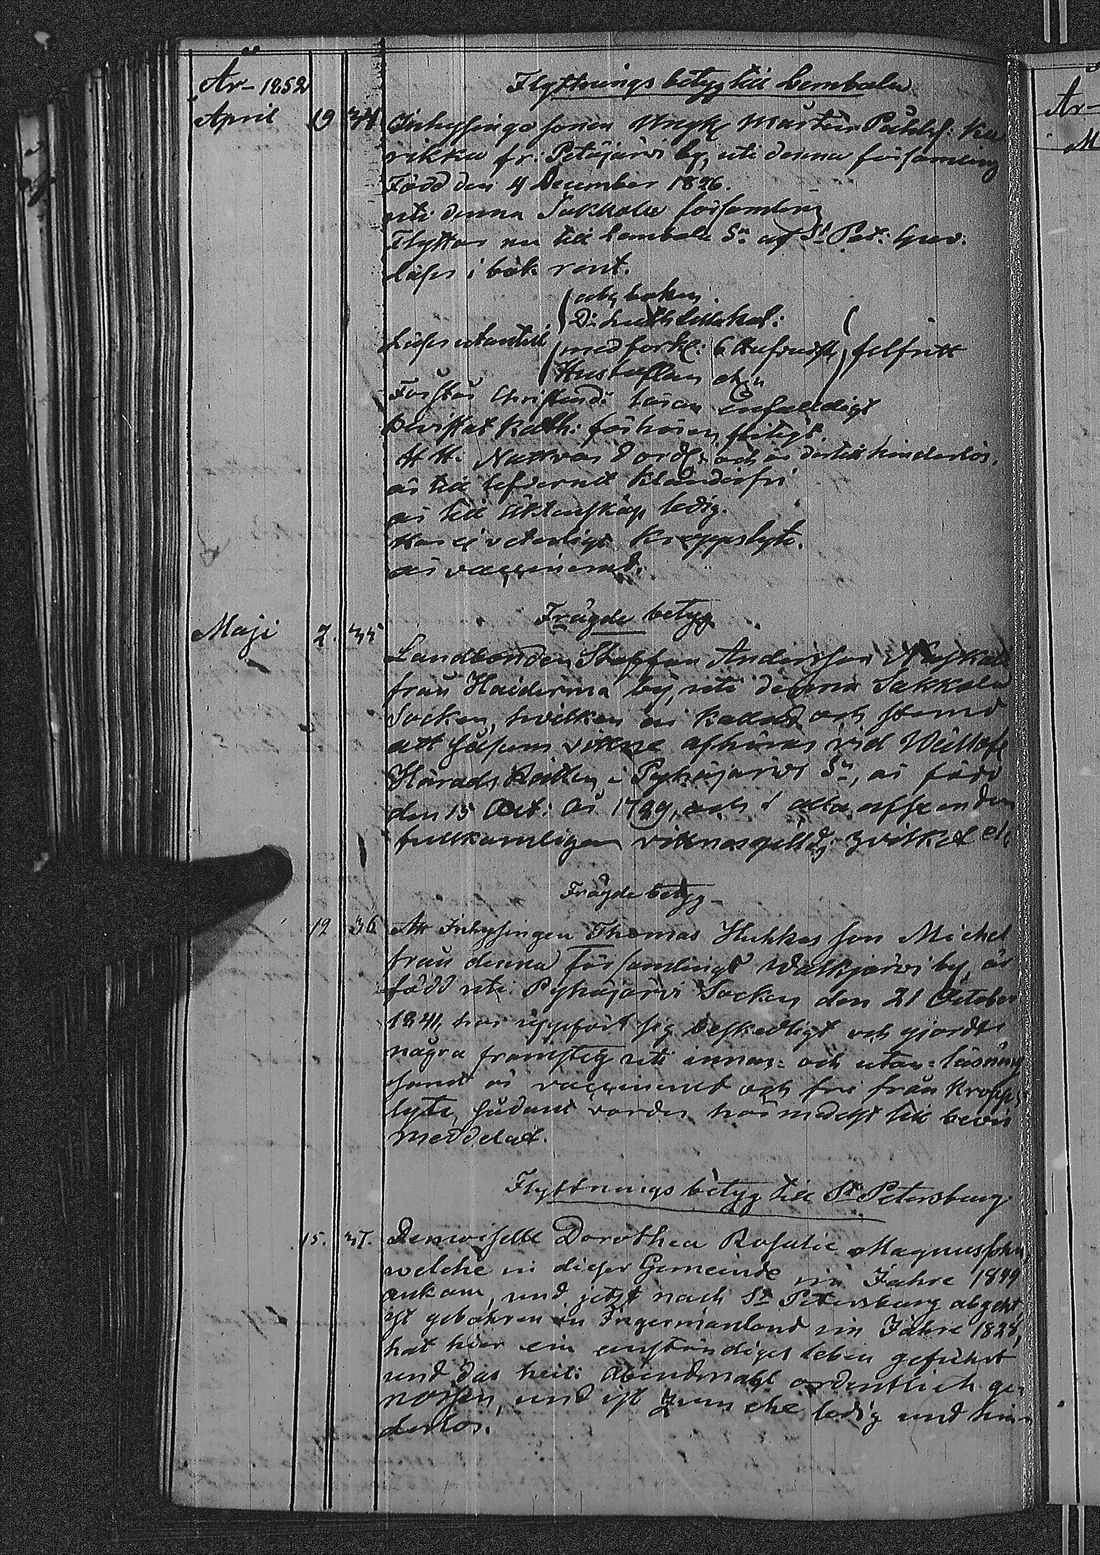 År 1852 Flyttnings betyg till Lembala
April 19 34 Inhysinge sonen Yngk Mårten Påhlss: Ku
rikka fr. Petäjärvi by, uti denna församling
Född den 4 December 1826.
uti denna Sakkola församling
Flyttar nu till Lembala Sn af St Pet: Guv:
läser i bok rent.
abc boken.
D: Luth: lilla kat:
Läser utantill med förkl: felfritt
Husta flan
Förstår Christend: läran enfaldigt
Bevistat Kath: förhören flitigt.
H. H. Nattvard ordtl: och är dertill hinderlös.
är till lefvernet klanderfri
är till Äktenskap ledig.
Har ej veterligt kroppslyte.
är vaccinerad.
Frägde betyg
Maji 2. 35 Landbonden Staffan Andersson
från Haiderma by, uti denna Sakkola
Socken, hvilken är kallad och stemd
att såsom vittne afhöras vid
Härads Rätten i Pyhäjärvi Sn, är född
den 15 Oct: år 17 och i alla afseenden
fullkomligen vittnesgill, hvilket etc
Frägde betyg
12 36 Att Inhysingen Thomas Hukkas son Michel
från denna församlings Walkjärvi by, är
född uti Pyhäjärvi Socken den 21 October
1841, har uppfört sig beskedligt och gjordt
några framsteg uti innan- och utan-läsning
samt är vaccinerad och fri från kropps
lyte, sådant varder härmedelst till bevis
meddelat.
Flyttnings betyg till St Petersburg
15. 37. Demoiselle Dorothea Rosalie Magnussohn,
welche in dieser Gemeinde im Jahre 1849
ankam, und jetzt nach St Petersburg abgeht,
ist gebohren in Ingermanland im Jahre 1824,
hat hier ein anständiges leben geführt
und das heil: Abendmahl ordentlich ge-
nossen, und ist zum ehe ledig und hin-
derlos.
År
M